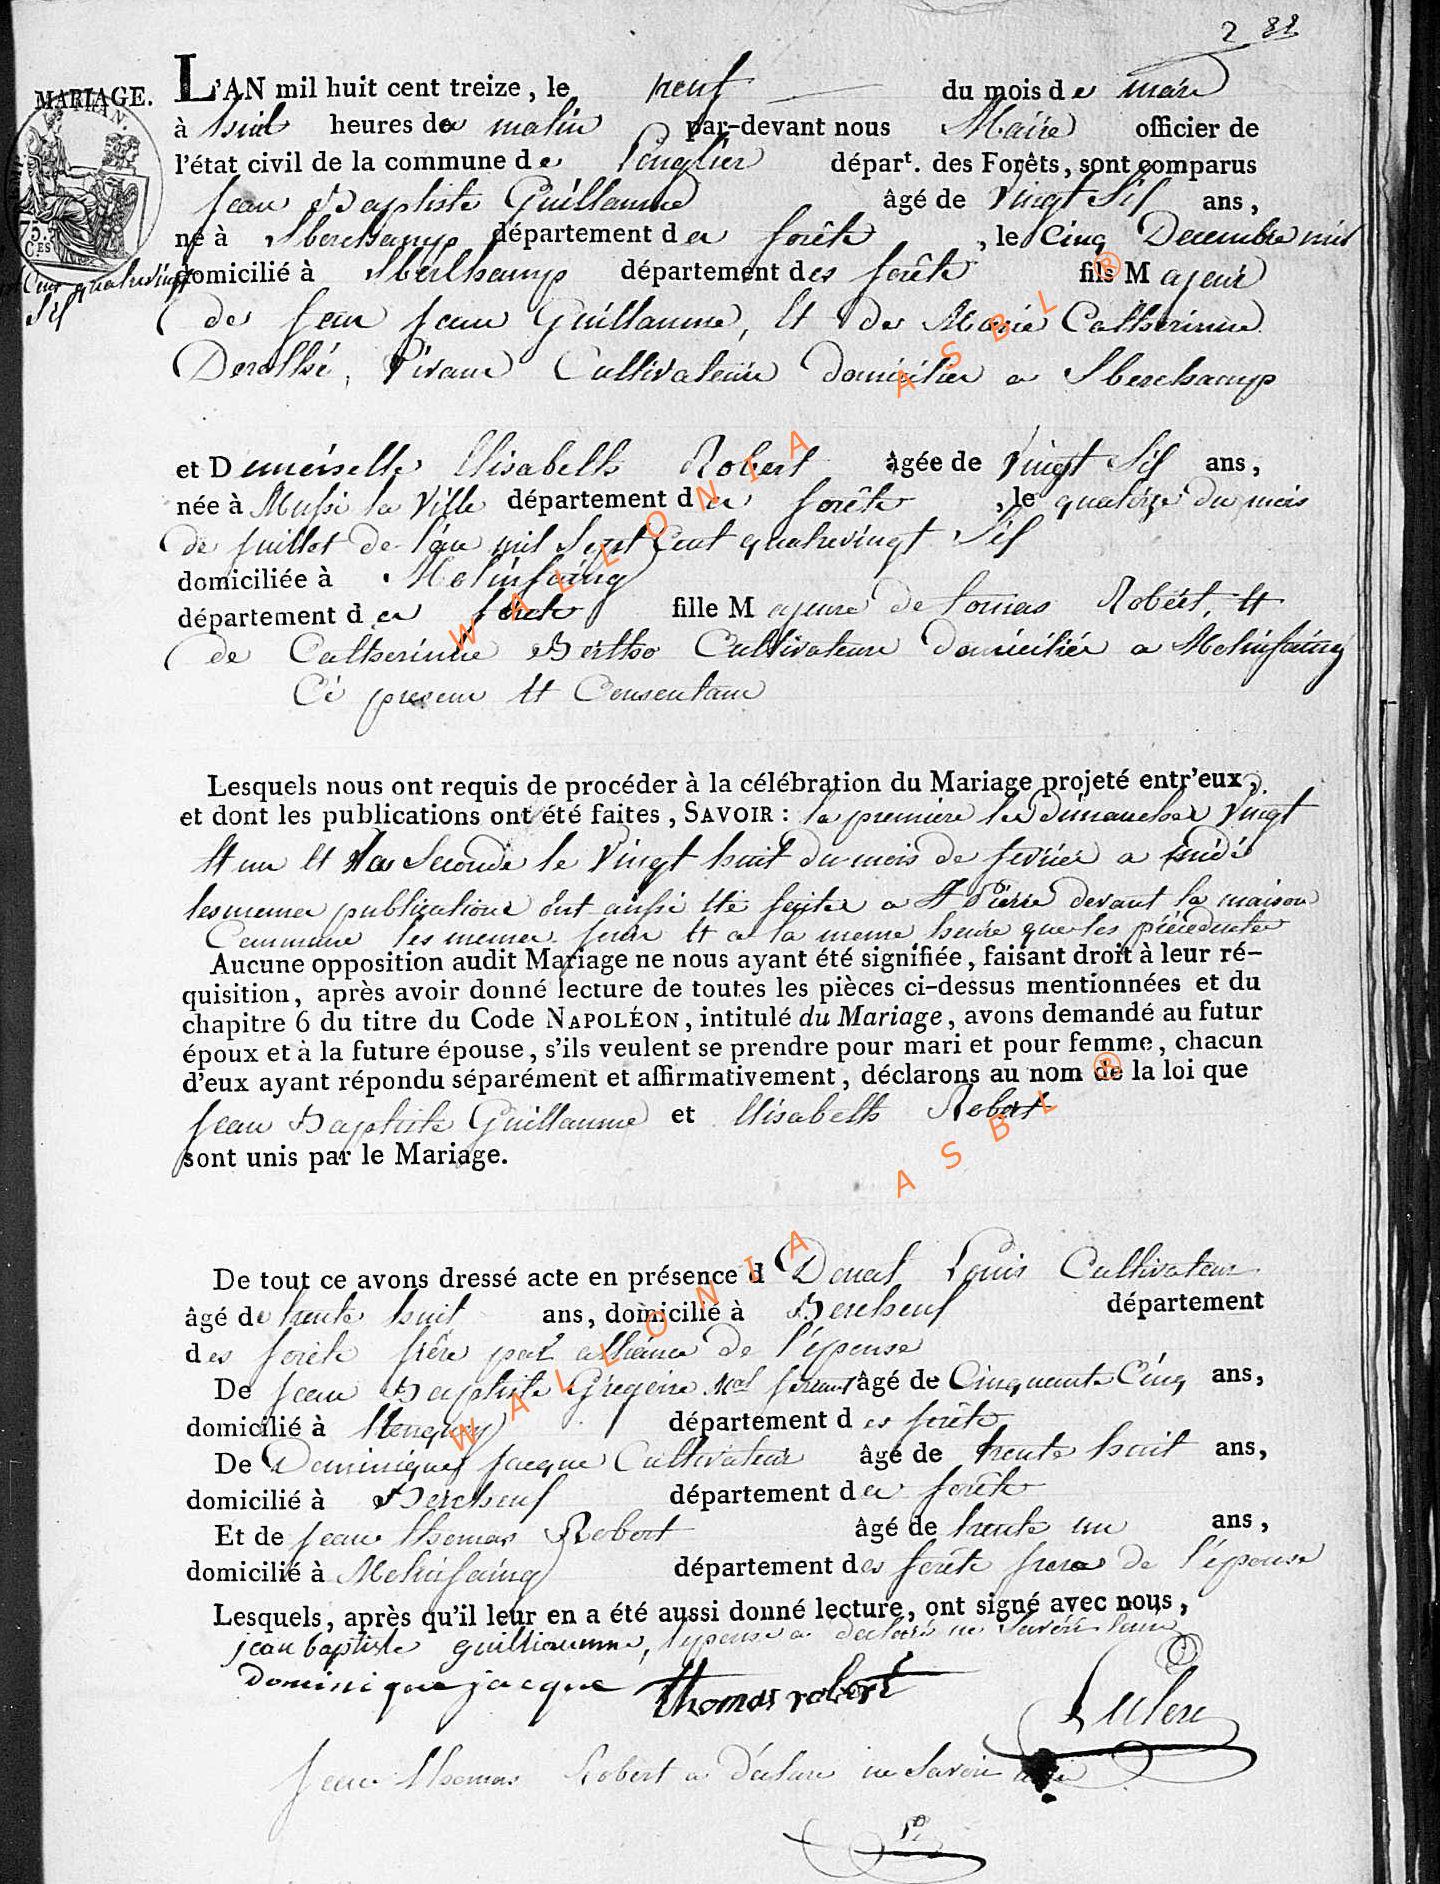 2 88
MARIAGE. L'AN mil huit cent treize, le neuf du mois de mars
à huit heures du matin par-devant nous Maire officier de
l'état civil de la commune de Longlier départ. des Forêts, sont comparus
Jean Baptiste Guillaume âgé de Vingt Sif ans,
né à Sberchamp département des forêts, le Cinq Decembre mil
Sept Cent quatrevingt
Sif
domicilié à Sberchamp département des forêts fils Majeur
de Jean Jean Guillaume, Et de Marie Catherinne
Derathé, Vivans Cultivateurs domicilies a Sberchamp
et Demoiselle Elisabeth Robert âgée de Vingt Sif ans,
née à Mussi la Ville département des forêts, le quatorze du mois
de Juillet de l'an mil Sept Cent quatrevingt Sif
domiciliée à Molinfaing
département des forêts fille Majeure de tomas Robert, Et
de Catherinne Bertho Cultivateurs domiciliés a Molinfaing
Ci presens Et Consentans
Lesquels nous ont requis de procéder à la célébration du Mariage projeté entr'eux,
et dont les publications ont été faites, SAVOIR: la premiere le dimanche Vingt
Et un Et la Seconde le Vingt huit du mois de fevrier a midi
les memes publications ont aussi Eté faites a St Pierre devant la maison
Commune les memes jours Et a la meme heure que les précédentes
Aucune opposition audit Mariage ne nous ayant été signifiée, faisant droit à leur ré-
quisition, après avoir donné lecture de toutes les pièces ci-dessus mentionnées et du
chapitre 6 du titre du Code NAPOLÉON, intitulé du Mariage, avons demandé au futur
époux et à la future épouse, s'ils veulent se prendre pour mari et pour femme, chacun
d'eux ayant répondu séparément et affirmativement, déclarons au nom de la loi que
Jean Baptiste Guillaume et Elisabeth Robert
sont unis par le Mariage.
De tout ce avons dressé acte en présence d Donat Louis Cultivateur
âgé de trente huit ans, domicilié à Bercheuf département
des forêts frêre par alliance de l'épouse
De Jean Baptiste Gregoire Mal ferant âgé de Cinquante Cinq ans,
domicilié à département des forêts
De Dominique Jacque Cultivateur âgé de trente huit ans,
domicilié à Bercheuf département des forêts
Et de Jean thomas Robert âgé de trente un ans,
domicilié à Molinfaing département des forêts frere de l'épouse
Lesquels, après qu'il leur en a été aussi donné lecture, ont signé avec nous,
jean baptiste guilliaumme, l'epouse a declaré ne Savoir signer
Dominique jacque thomas robert
Leclere
Jean thomas Robert a déclaré ne Savoir
WALLONIA ASBL ®
WALLONIA ASBL ®